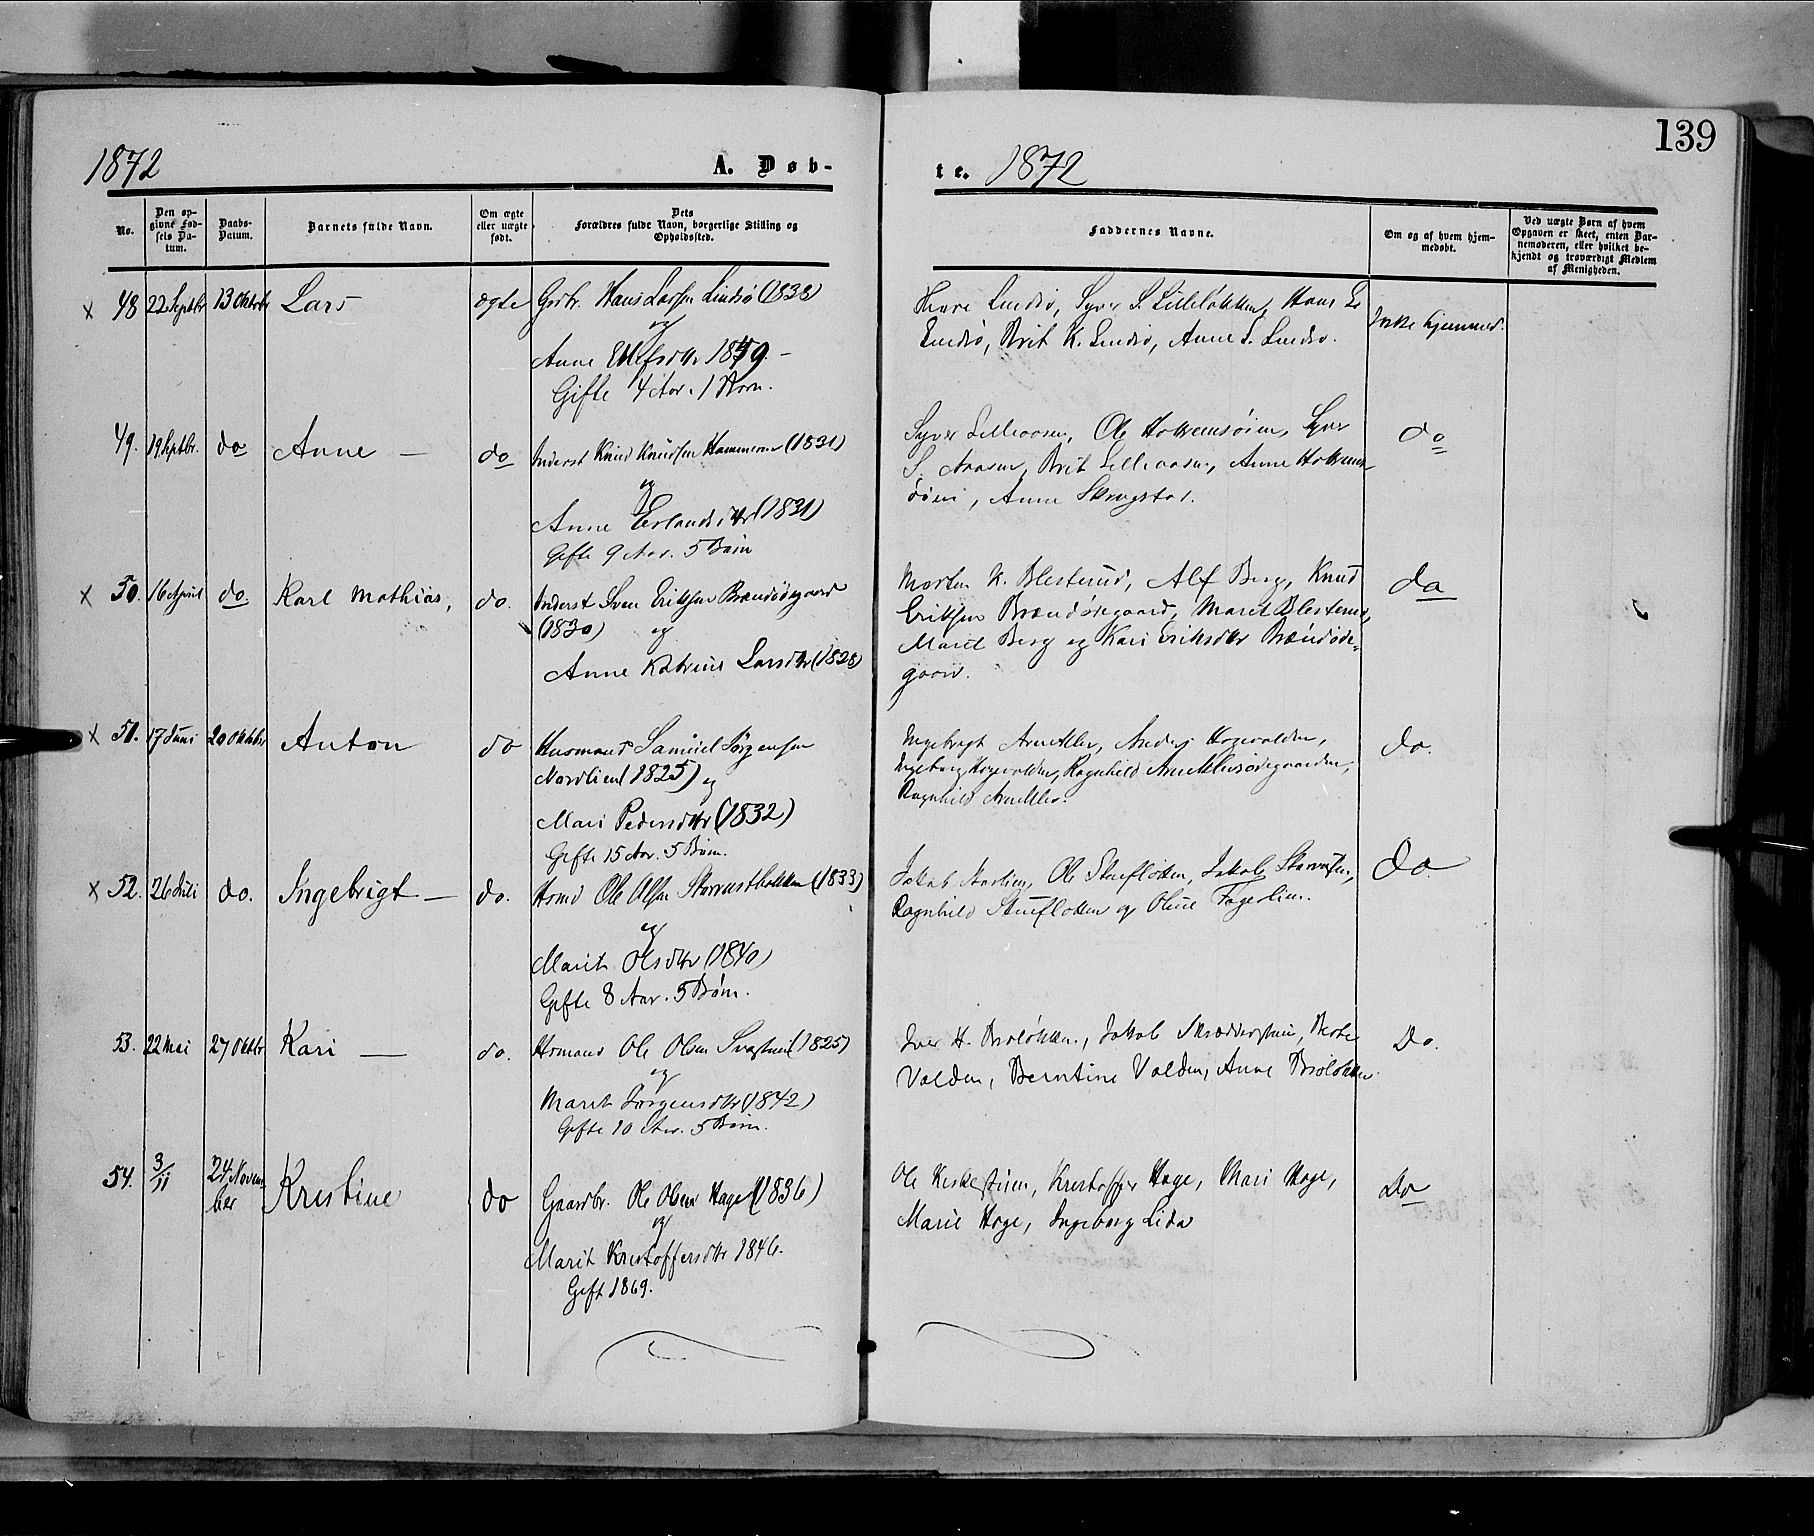 139
1872
A. Døb-
te. 1872
No.
Den op-
givne Fød-
sels Da-
tum.
Daabs-
Datum.
Barnets fulde Navn.
Om ægte
eller uægte
født.
Dets
Forældres fulde Navn, borgerlige Stilling og
Opholdssted.
Faddernes Navne.
Om og af hvem hjem-
medøbt.
Ved uægte Børn af hvem
Opgaven er skeet, enten Bar-
nemoderen, eller hvilket be-
kjendt og troværdigt Medlem
af Menigheden.
x 48 22 Septbr 13 Oktobr Lars ægte Grdbr. Hans Larsen Lindsø (1838)
og
Anne 1849 -
Gifte 4 Aar. 1 Barn.
Lindsø, Syver S. Lilleløkken, Hans L.
Lindsø, Brit K. Lindsø, Anne S. Lindsø.
Ikke hjemmed.
49. 19 Septbr. do Anne — do Inderst Knud Knudsen Hammeren (1831)
og
Anne Erlandsdtr (1831)
Gifte 9 Aar. 5 Børn
Syver Lilleaasen, Ole Syver
S. Aasen, Brit Lilleaasen, Anne
Anne Skrugstad.
do
x 50. 16 April do. Karl Mathias, do. Inderst Sven Eriksen Brændødegaard
(1830) og
Anne Katrine Larsdtr (1828)
Morten K. Blesterud, Alf Berg, Knud
Eriksen Brændødegaard, Marit Blesterud,
Marit Berg og Kari Eriksdtr Brændøde-
gaard.
do
x 51. 17 Juni 20 Oktober Anton do Husmand Samuel Jørgensen
Nordlien (1825) og
Mari Pedersdtr (1832)
Gifte 15 Aar. 5 Børn.
Ingebrigt Anders
Ingeborg Ragnhild
Ragnhild
do.
x 52. 26 Juli do. Ingebrigt — do. Hsmd Ole Olsen (1833)
og
Marit Olsdtr (1840)
Gifte 8 Aar. 5 Børn.
Jakob Ole Stuefløtten, Jakob
Ragnhild Stuefløtten og Oline Fagerlien.
do
53. 22 Mai 27 Oktbr Kari — do. Hsmand Ole Olsen (1825)
og
Marit Jørgensdtr (1842)
Gifte 10 Aar. 5 Børn.
Iver H. Jakob
Volden, Berntine Volden, Anne
Do.
54. 3/11 24. Novem-
ber Kristine do Gaardbr. Ole Olsen Hage (1836)
og
Marit Kristoffersdtr 1846.
Gift 1869.
Ole Kristoffer Hage, Mari Hage,
Marie Hage, Ingeborg Lida
Do